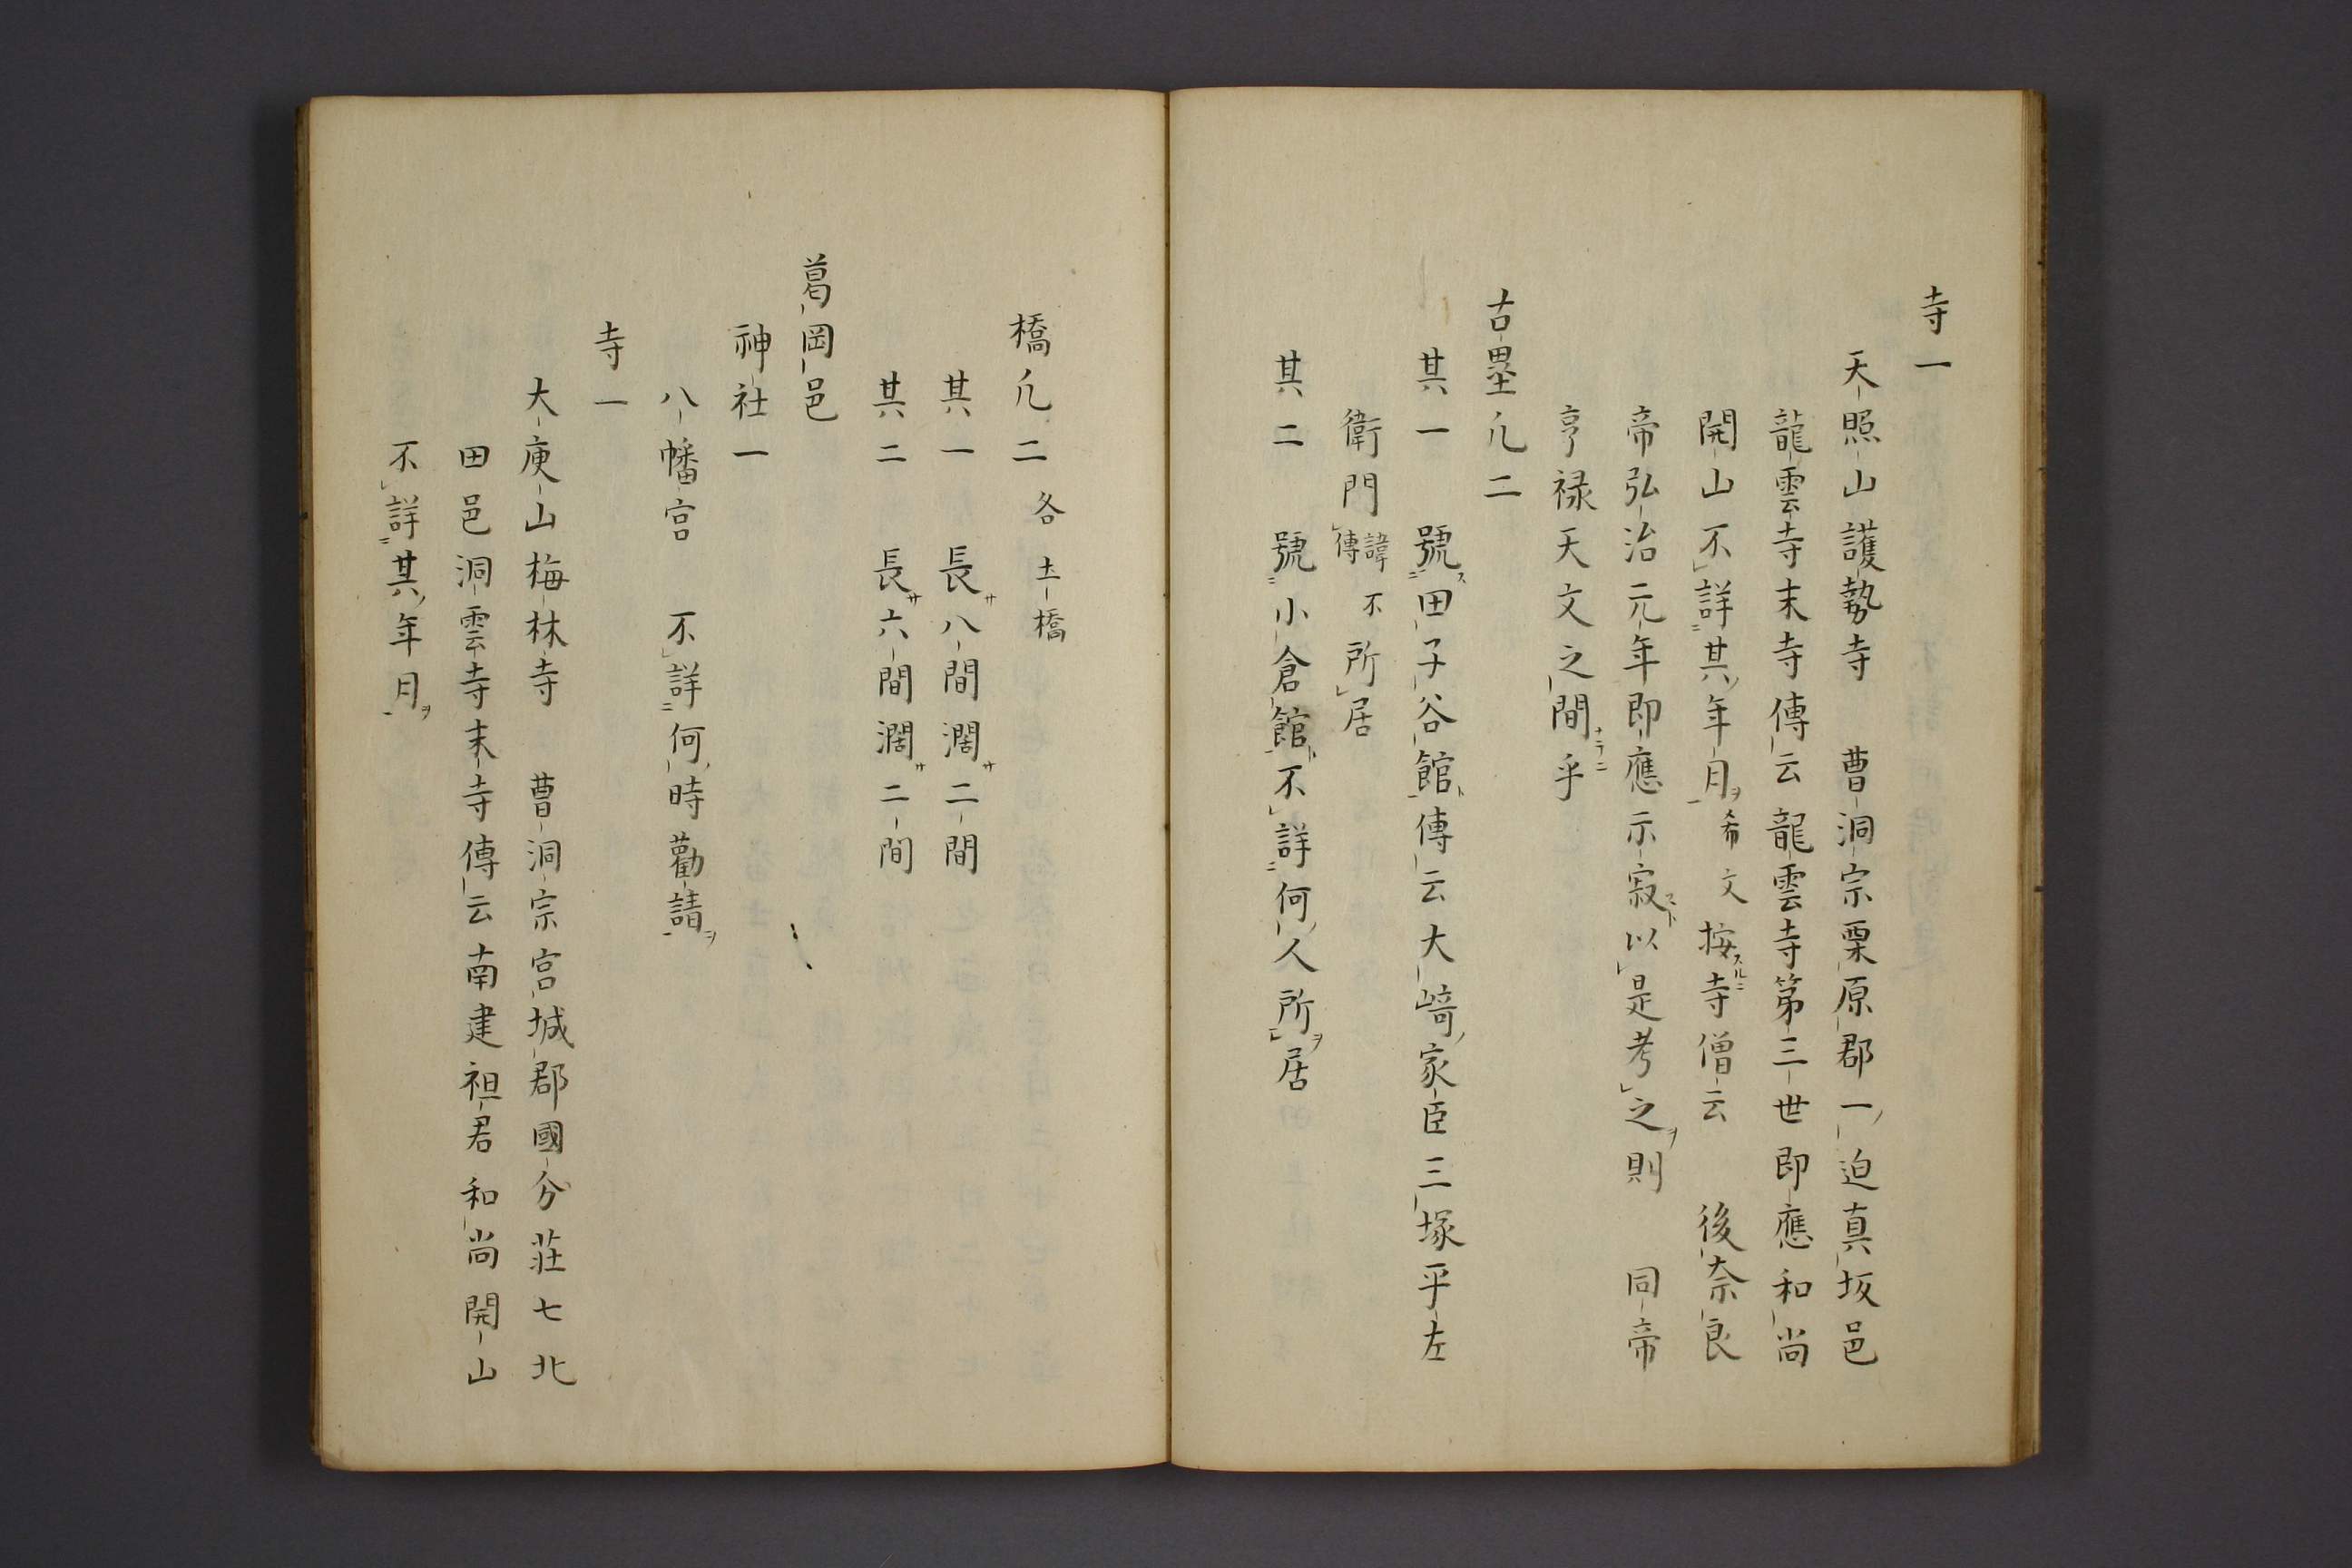 寺一
天照山護勢寺　曹洞宗栗原郡一迫真坂邑
龍雲寺末寺傳云龍雲寺第三世即應和尚
開山不詳其年月希文按寺僧云　後奈良
帝弘治元年即應示寂以是考之則　同帝
亨禄天文之間乎
古塁凢二
其一　號田子谷館傳云大﨑家臣三塚平左
衛門諱不傳所居
其二　號小倉館不詳何人所居
橋凢二各土橋
其一　長八間濶二間
其二　長六間濶二间
葛岡邑
神社一
八幡宮　不詳何時勸請
寺一
大庾山梅林寺　曹洞宗宮城郡國分荘七北
田邑洞雲寺末寺傳云南建祖君和尚開山
不詳其年月